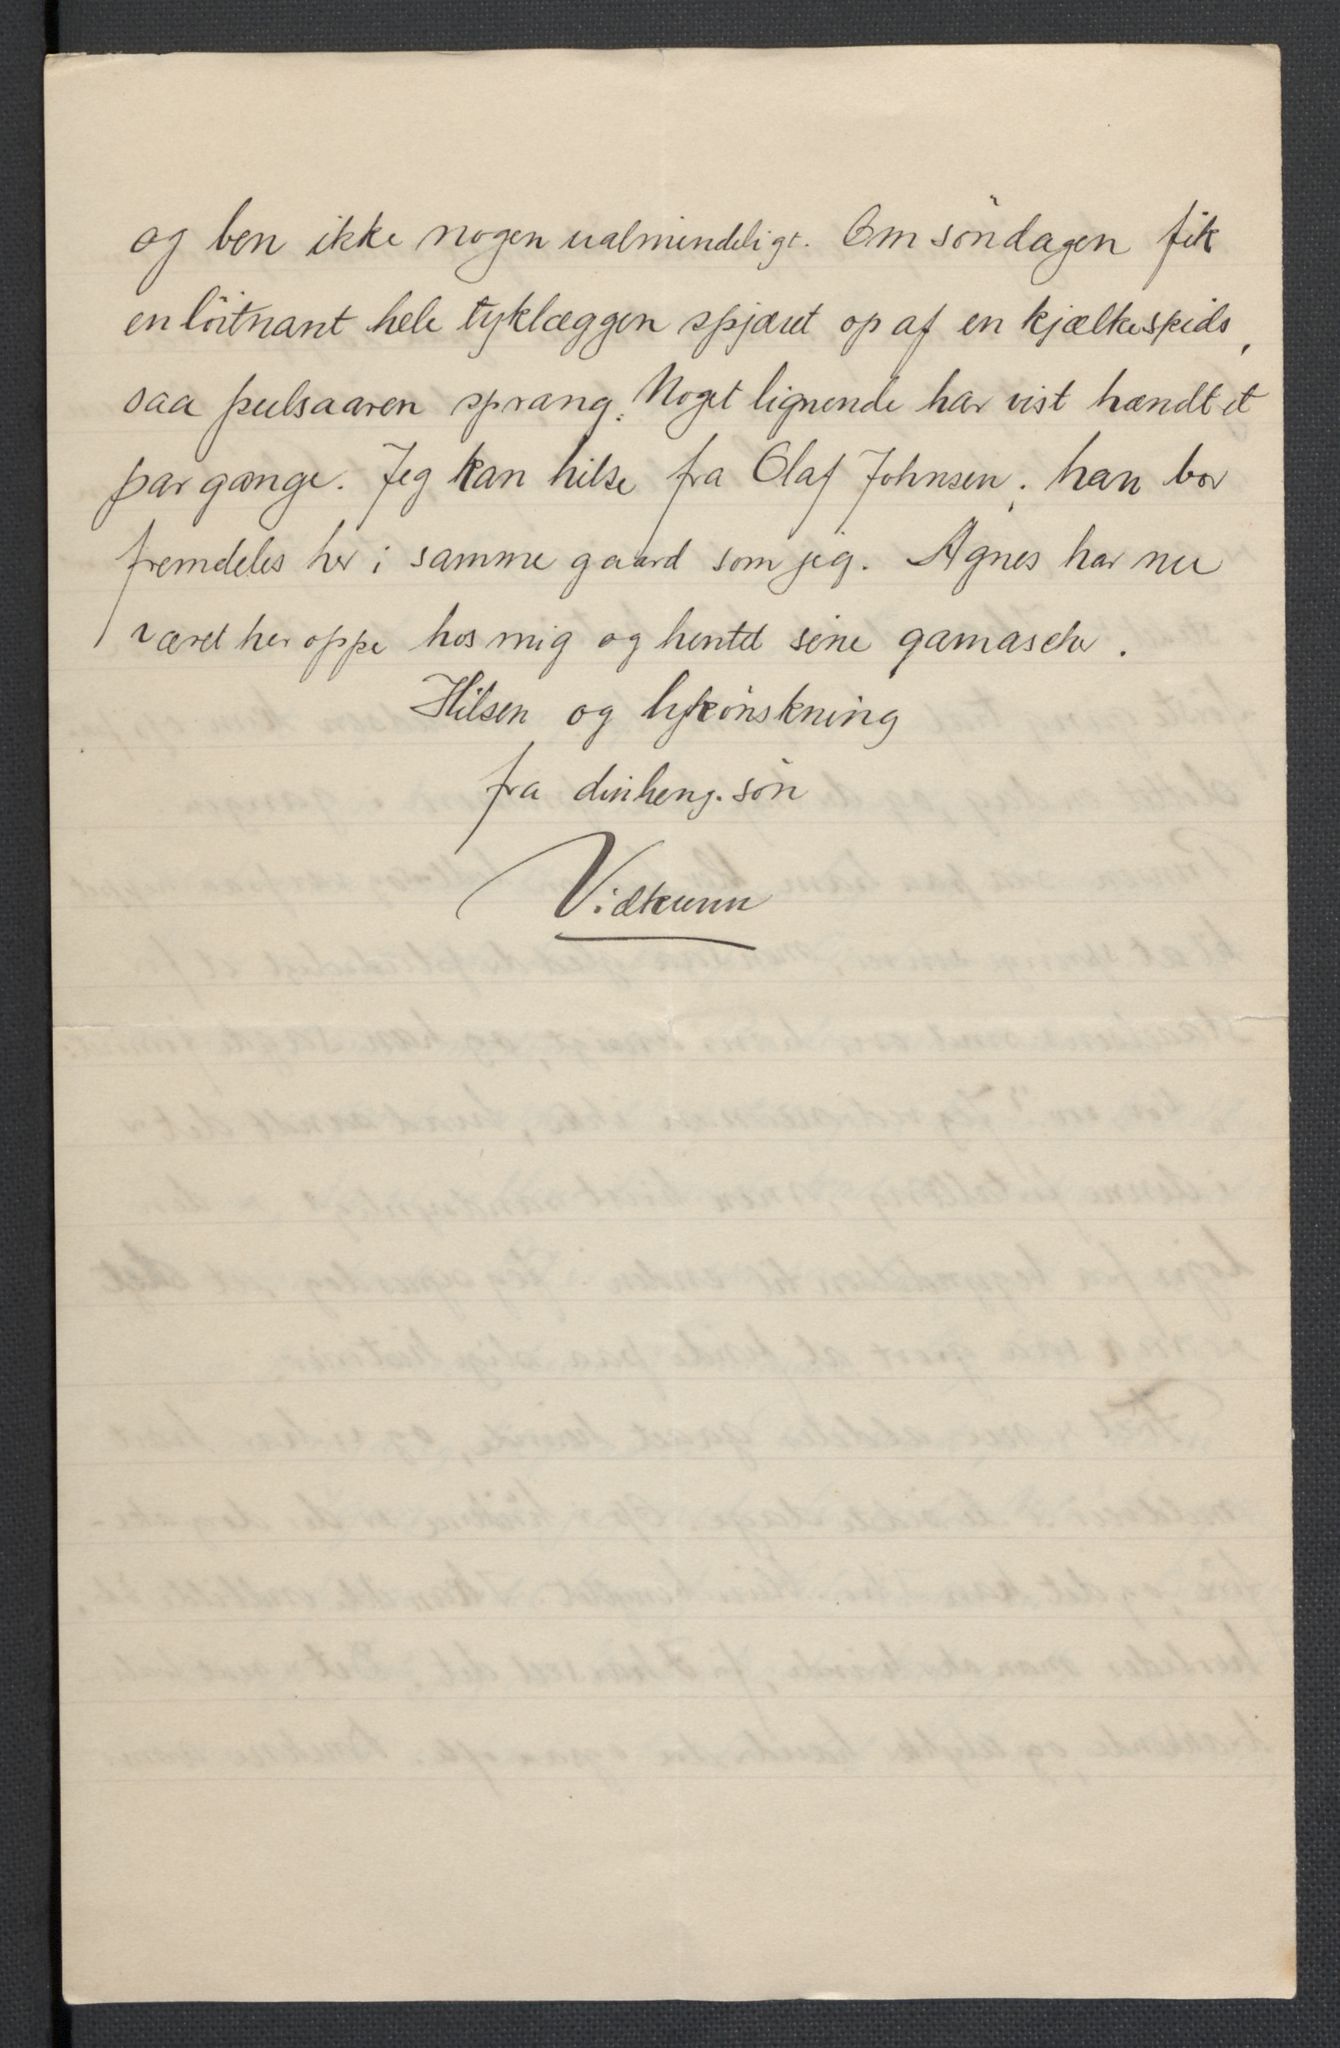 og ben ikke nogen ualmindeligt. Om søndagen fik
en løitnant hele tyklæggen spjæret op af en kjælkespids,
saa pulsaaren sprang. Noget lignende har vist hændt et
par gange. Jeg kan hilse fra Olaf Johnsen; han bor
fremdeles her i samme gaard som jeg. Agnes har nu
været her oppe hos mig og hentet sine gamascher.
Hilsen og lykønskning
fra din heng. søn
Vidkunn